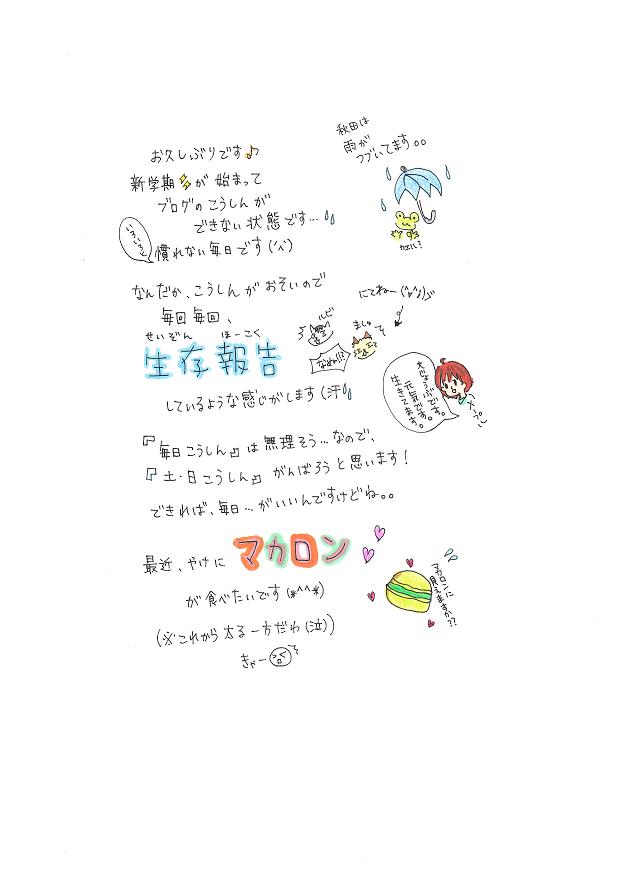 お久しぶりです♪
秋田は
雨が
つづいてます。。
新学期が始まって
ブログのこうしんが
できない状態です…
いろいろと
慣れない毎日です(^^;)
カエル?
なんだか、こうしんがおそいので
毎回毎回、
せいぞん ほーこく
生存報告
しているような感じがします(汗
ルビ
ましゅ
なぬ!!!
にてねー(^^;)
大じょうぶです。
元気です。
生きてます。
『毎日こうしん』は無理そう…なので、
『土・日こうしん』がんばろうと思います!
できれば、毎日…がいいんですけどね。。
最近、やけにマカロン
が食べたいです(*^^*)
マカロンに
見えますか??
(※これから太る一方だわ(泣))
きゃー